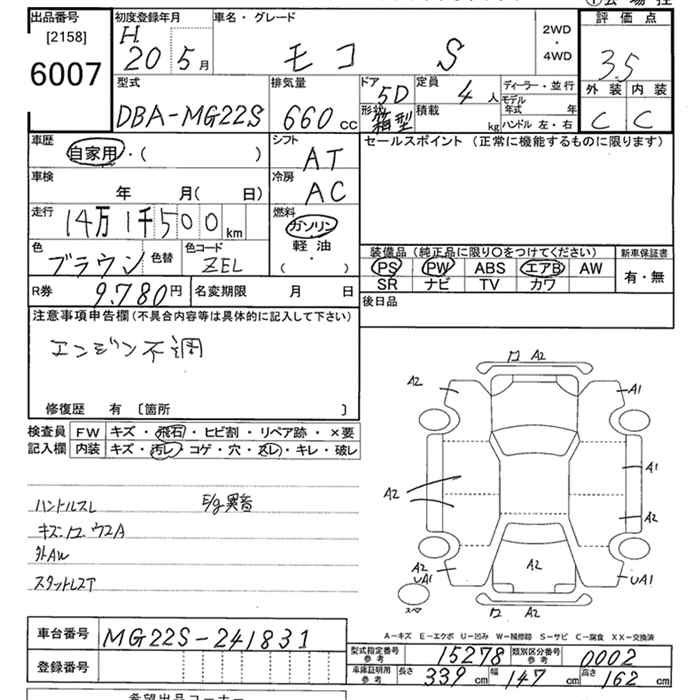 出品番号
[2158]
6007
初度登録年月
H. 20 5月
車名・グレード
モコ S
2WD
・
4WD
評価点
3.5
外装 内装
C C
型式
DBA-MG22S
排気量
660cc
ドア 5D
形状 箱型
定員 4人
積載 kg
ディーラー・並行
モデル年式 年
ハンドル 左・右
車歴
自家用・( )
シフト
AT
セールスポイント (正常に機能するものに限ります)
車検
年 月( 日)
冷房
AC
走行
14万1千500km
燃料
ガソリン
軽油
・
( )
色
ブラウン
色替
色コード
ZEL
装備品 (純正品に限り〇をつけてください)
PS PW ABS エアB AW
SR ナビ TV カワ
新車保証書
有・無
R券 9,780円
名変期限 月 日
後日品
注意事項申告欄(不具合内容等は具体的に記入して下さい)
エンジン不調
修復歴 有 〔箇所 〕
検査員 FW キズ・飛石・ヒビ割・リペア跡・×要
記入欄 内装 キズ・汚レ・コゲ・穴・スレ・キレ・破レ
ハンドルスレ E/g異音
外AW
A2
A2 A1
A1
A2 A2
A2
A2
UA1 UA1
スペア
A2
車台番号 MG22S-241831
登録番号
A-キズ E-エクボ U-凹み W-補修跡 S-サビ C-腐食 XX-交換済
型式指定番号 参考 15278
類別区分番号 参考 0002
車庫証明用 参考 長さ 339cm 幅 147cm 高さ 162cm
希望出品コーナー